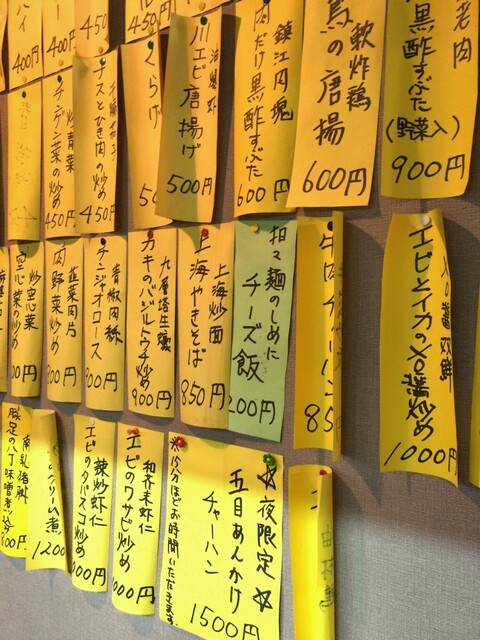 400円
400円
450
450円
老肉
黒酢すぶた
(野菜入)
900円
軟炸鶏
の唐揚
600円
鎮江肉塊
肉だけ黒酢すぶた
600円
油爆虾
川エビ唐揚げ
500円
くらげ
ナスとひき肉の炒め
450円
炒青菜
チンゲン菜の炒め
450円
エビとイカのXO醤炒め
1000円
牛肉
85
担々麺のしめに
チーズ飯
200円
上海炒面
上海やきそば
850円
九層塔生蠔
カキのバジルトウチ炒め
900円
青椒肉
チンジャオロース
韮菜肉片
肉野菜炒め
炒空心菜
空心菜の炒め
☆夜限定☆
五目あんかけ
チャーハン
1500円
※15分ほどお時間いただきます
和芥末虾仁
エビのワサビ炒め
辣炒虾仁
エビのタバスコ炒め
クリーム煮
1200
南乳猪脚
豚足の八丁味噌煮込み
800円